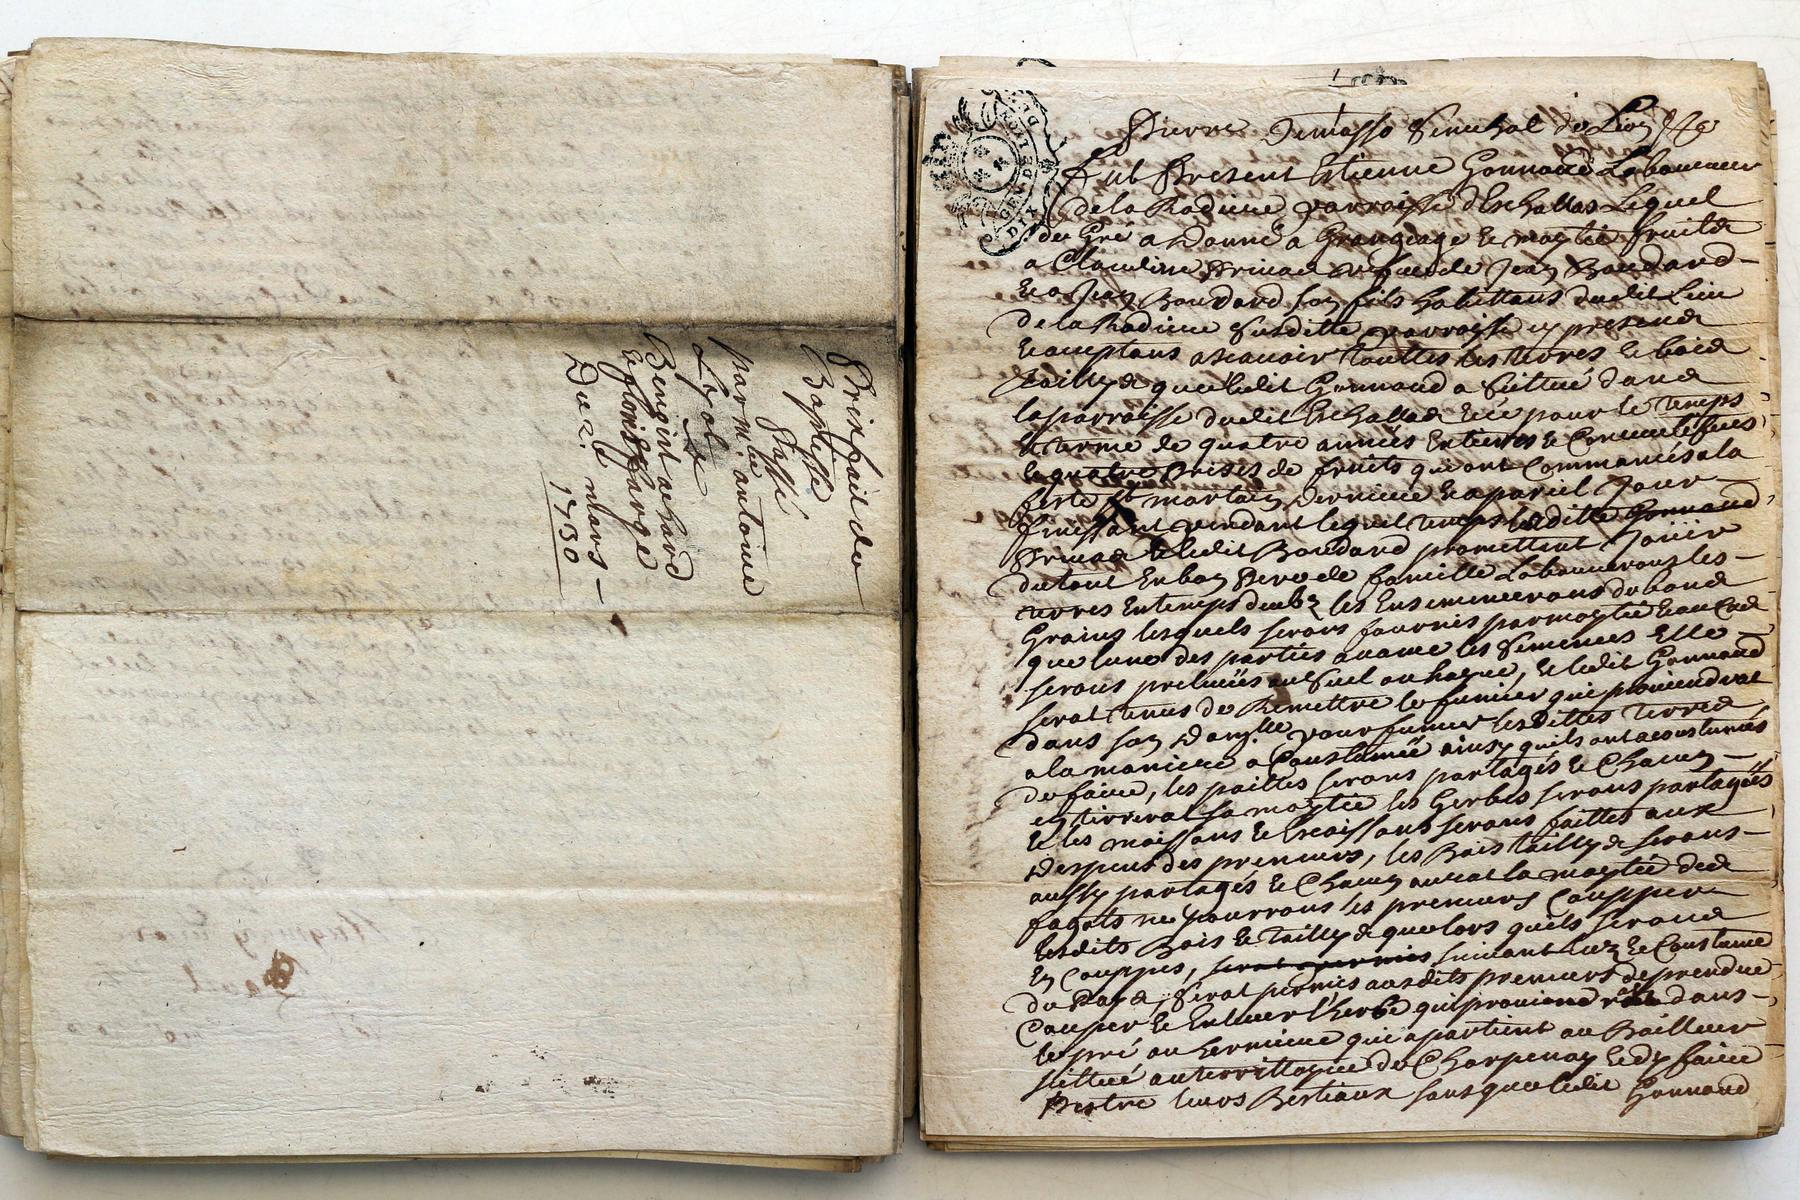 Prixfait du
Baptiste
Stassi
par mre antoine
Loyole
Bengoint achard
& flouis farge
Du 2e mars
1730
GEN DE LION
DIX
Pierre senechal de Lion
Fut Present Etienne Gonnaud Laboureur
de la Rodiere parroisse d'Eschallas Lequel
du Gré a Donné a Grangeage & moytié fruits
a Claudine Prinas vefve de Jean Boudard
& a Jean Boudard son fils habittans dudit Lieu
de la Rodiere susditte parroisse cy presens
& aceptans ascavoir touttes les terres & bois
Tailly que ledit Gonnaud a scittué dans
la parroisse dudit Eschallas & ce pour le temps
& terme de quatre années entieres & Consecutifves
& quatre Prises de fruits qui ont Commancés a la
feste st martin derniere & a pareil Jour
finissant pendant lequel temps laditte Gonnaud
Prinas & ledit Boudard promettent Jouir
du tout En bon Pere de famille Laboureront les
terres En temps deub les Ensemenceront de bons
Grains lesquels seront fournis par moytié & au Cas
que lune des parties avance les semences Elle
seront prelevés au suel ou hayre, & ledit Gonnaud
serat tenus de Remettre le fumier qui proviendrat
dans son Domlle pour fumer lesdittes terres
a la maniere a Coustumée ainsy quils ont acoustumés
de faire, les pailles seront partagés & Chacun
en tirerat sa moytié les Gerbes seront partagés
& les moissons & Escossons seront faittes aux
despens des preneurs, les Bois taillys seront
aussy partagés & Chacun aurat la moytié des
fagots ne pourront les preneurs Coupper
lesdits Bois & taillys que lors quils seront
En Couppes, serat permis suivant luz & Coustume
du Pays, serat permis ausdits preneurs de prendre
Couper & Enlever lherbe qui proviendrat dans
le pré ou hermure qui apartient au Bailleur
scittué au territtoire de Charpenay & dy faire
Pestre leurs Bestiaux sans que ledit Gonnaud